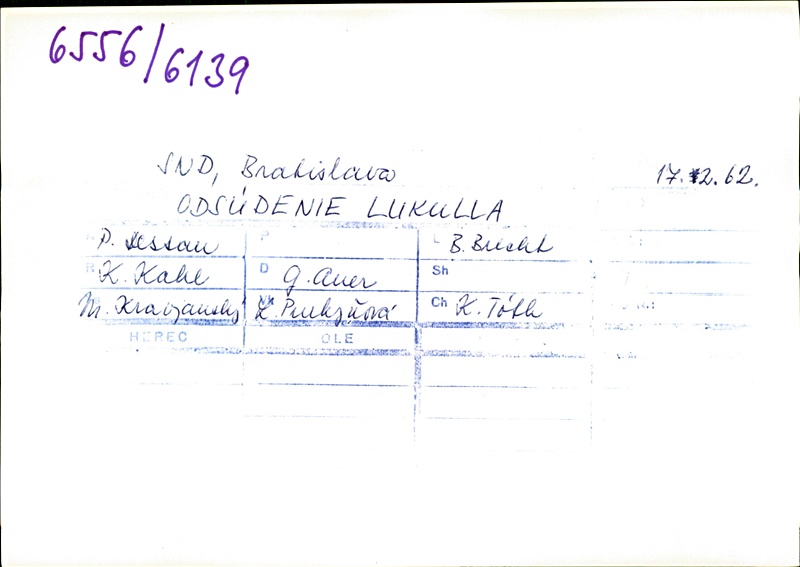 6556/6139
SND, Bratislava 17.12.62.
ODSÚDENIE LUKULLA
P. Dessau P L B. Brecht
R K. Kahl D G. Auer Sh
M. Kravjanský K. Purkyňová Ch K. Tóth
HEREC OLE